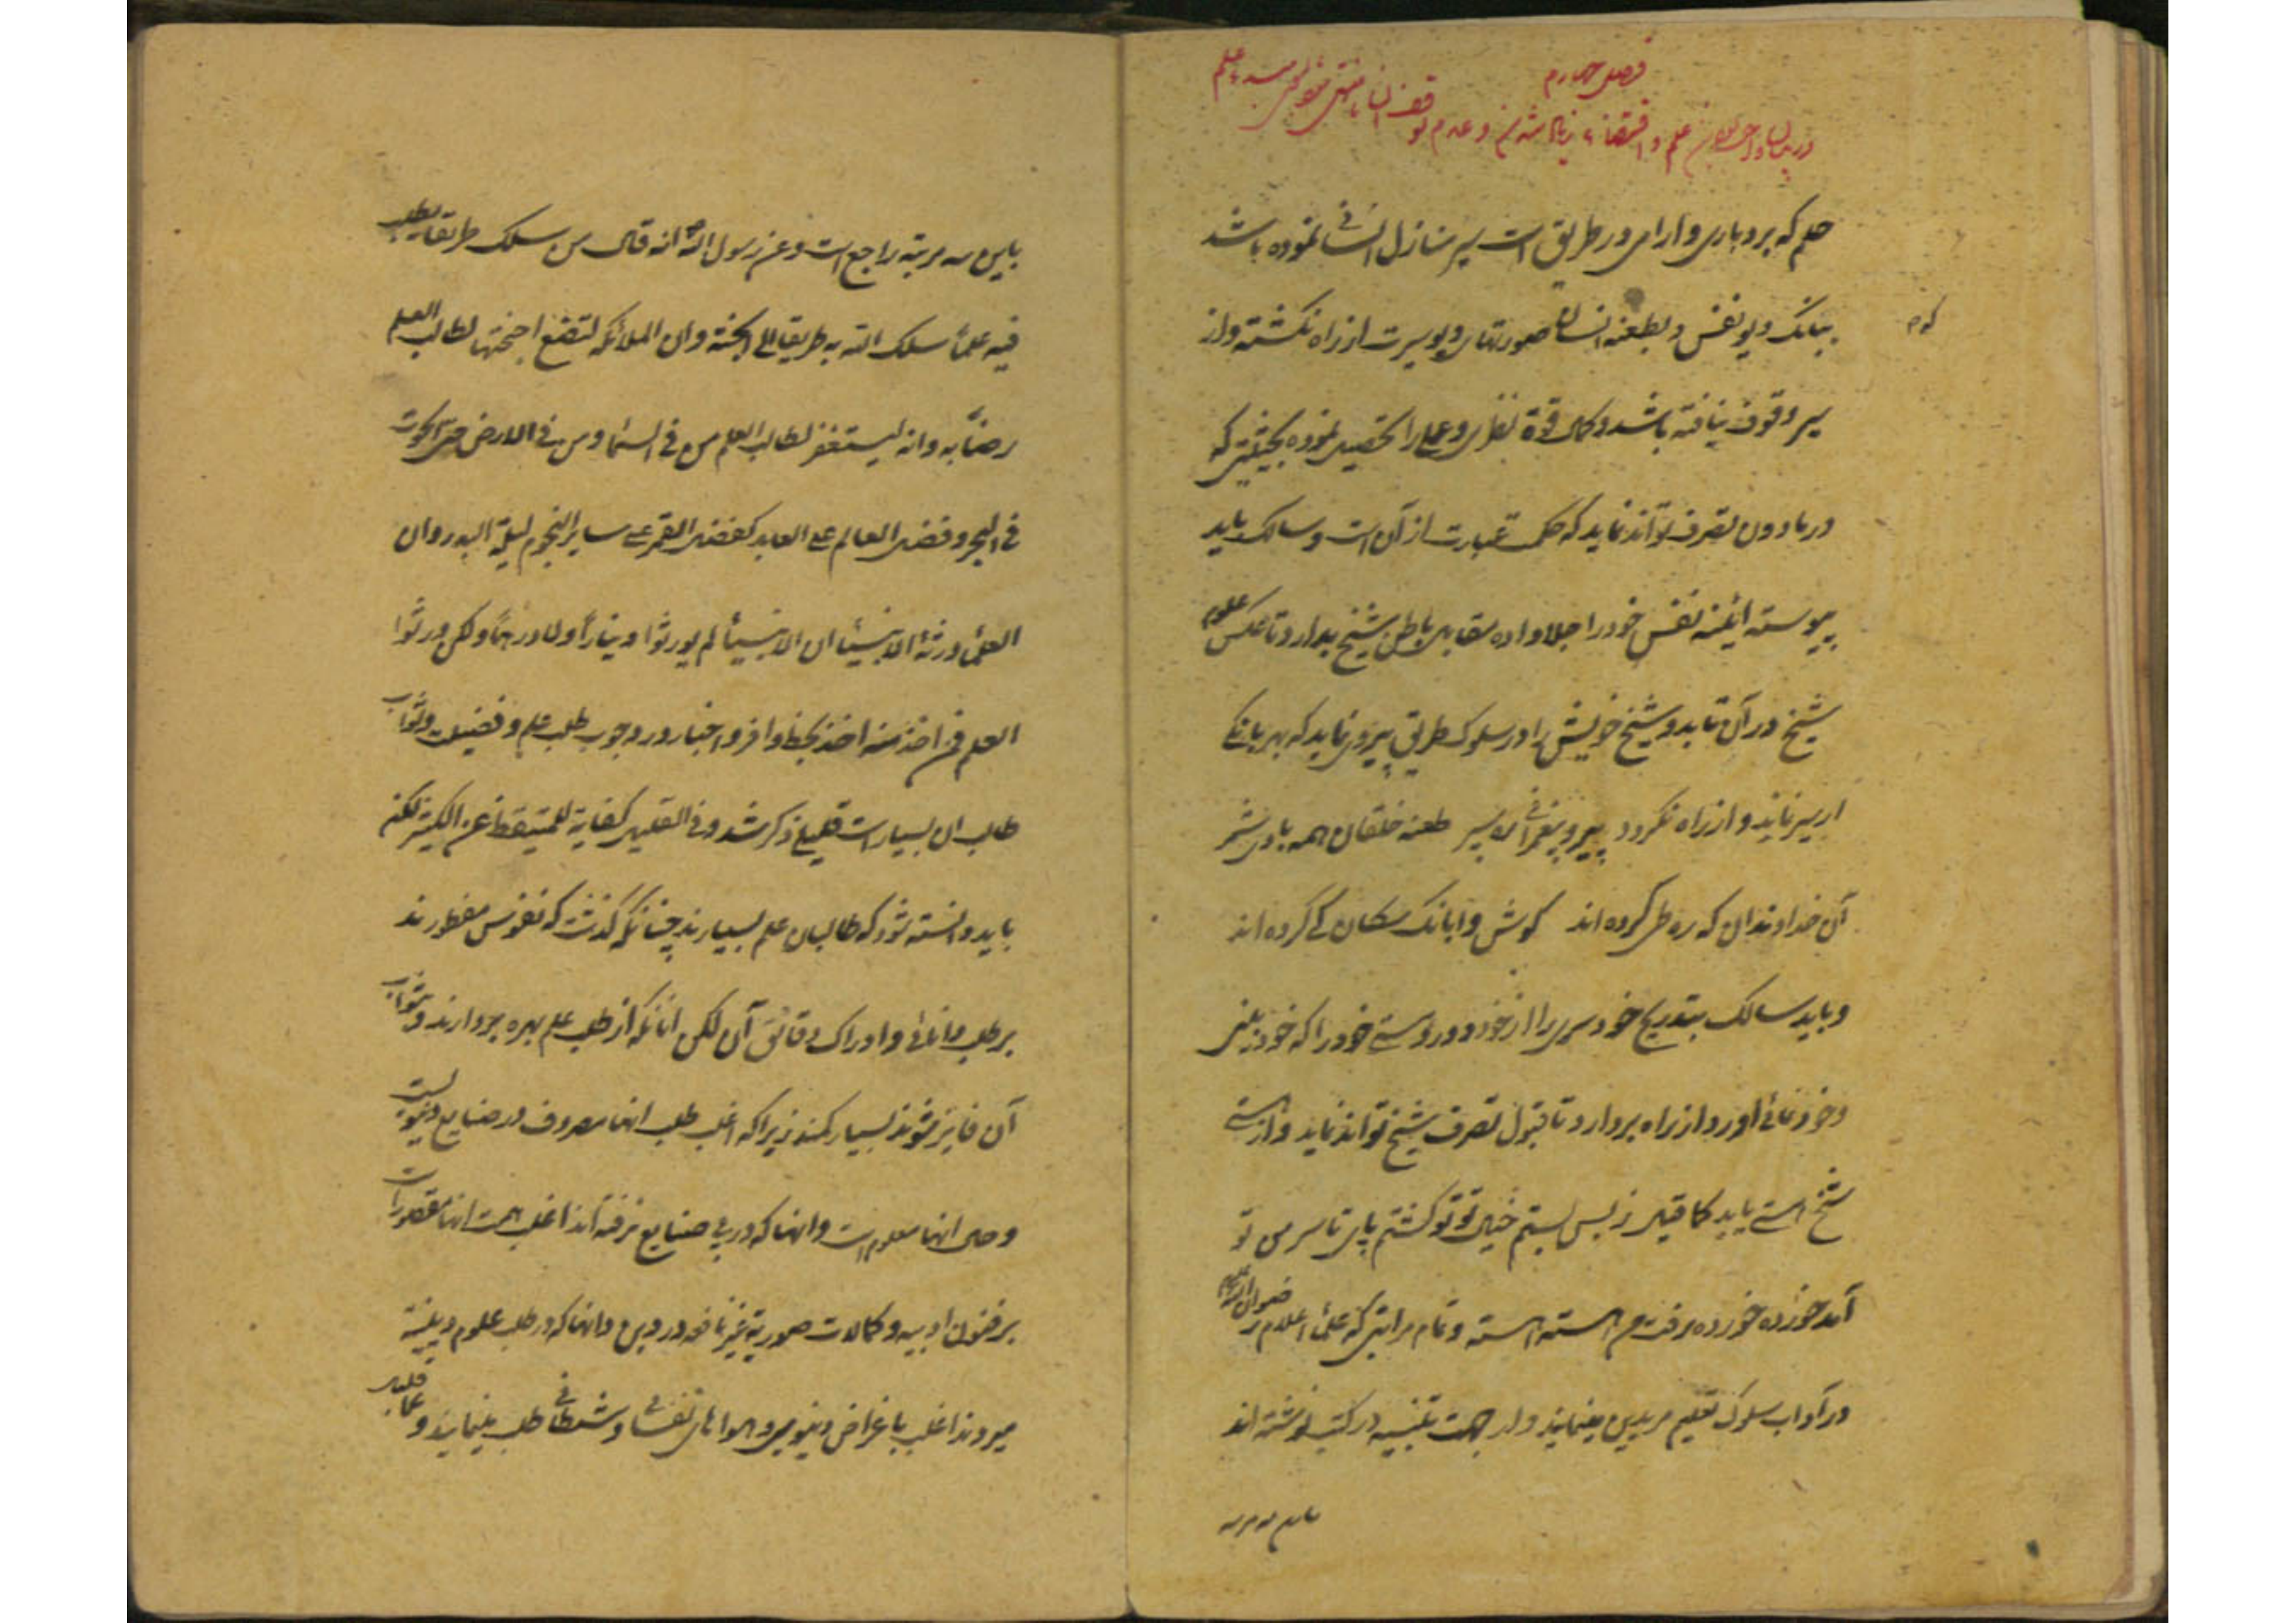 فصل چهارم
در بیان
حلم که بردباری و ارامی در طریق است سیر منازل انسانی نموده باشد
ببانک دیو نفس و بطعنه انسان صورتهای دیو سیرت از راه نکشته و از
سیر وقوف نیافته باشد و کمال قوة نظری و عملی را تحصیل نموده بحیثیتی که
در مادون تصرف تواند نماید که حکمت عبارت از آن است و سالک باید
پیوسته ائینه نفس خود را جلا داده مقابل باطن شیخ بدارد تا عکس علوم
شیخ در آن تابد و شیخ خویش را در سلوک طریق پیروی نماید که بهر بانکی
از سیر نماند و از راه نکردد پیرو پیغمبرانی ره سپر طعنه خلقان همه بادی شمر
آن خداوندان که ره طی کرده اند کوش وا بانک سکان کی کرده اند
و باید سالک بتدریج خودسری را از خود دور و هستی خود را که خودبینی
و خودنمائی اورد از راه بردارد تا قبول تصرف شیخ تواند نماید و از هستی
شیخ هستی یابد کما قیل ز بس بستم خیال تو تو کشتم پای تا سر من تو
آمد خورده خورده رفت من اهسته اهسته و تمام مراتبی که علمای اعلام رضوان الله علیهم
در آداب سلوک تعلیم مریدین مینمایند و از جهت تنبیه در کتب نوشته اند
باین سه مرتبه
باین سه مرتبه راجع است و عن رسول الله ص انه قال من سلک طریقا یطلب
فیه علماً سلک الله به طریقا الی الجنة و ان الملائکه لتضع اجنحتها لطالب العلم
رضاً به و انه لیستغفر لطالب العلم من فی السماء و من فی الارض حتی الحوت
فی البحر و فضل العالم علی العابد کفضل القمر علی سایر النجوم لیلة البدر و ان
العلماء ورثة الانبیاء ان الانبیاء لم یورثوا دیناراً ولا درهماً ولکن ورثوا
العلم فمن اخذ منه اخذ بحظ وافر و اخبار در وجوب طلب علم و فضیلت و ثواب
طالب ان بسیار است قلیلی ذکر شد و فی القلیل کفایة للمتیقظ عن الکثیر لکن
باید دانسته شود که طالبان علم بسیارند چنانکه کذشت که نفوس مفطورند
بر طلب دانائی و ادراک دقائق آن لکن انانکه از طلب علم بهره بردارند و بثواب
آن فایز شوند بسیار کمند زیرا که اغلب طلب انها مصروف در صنایع دنیویست
و حال انها معلوم است و انها که در پی صنایع نرفته اند اغلب همت انها مقصور است
بر فنون ادبیه و کمالات صوریة غیر نافعه در دین و انها که در طلب علوم دینیة
میروند اغلب باغراض دنیوی و هواهای نفسانی و شیطانی طلب مینمایند و قلیلی